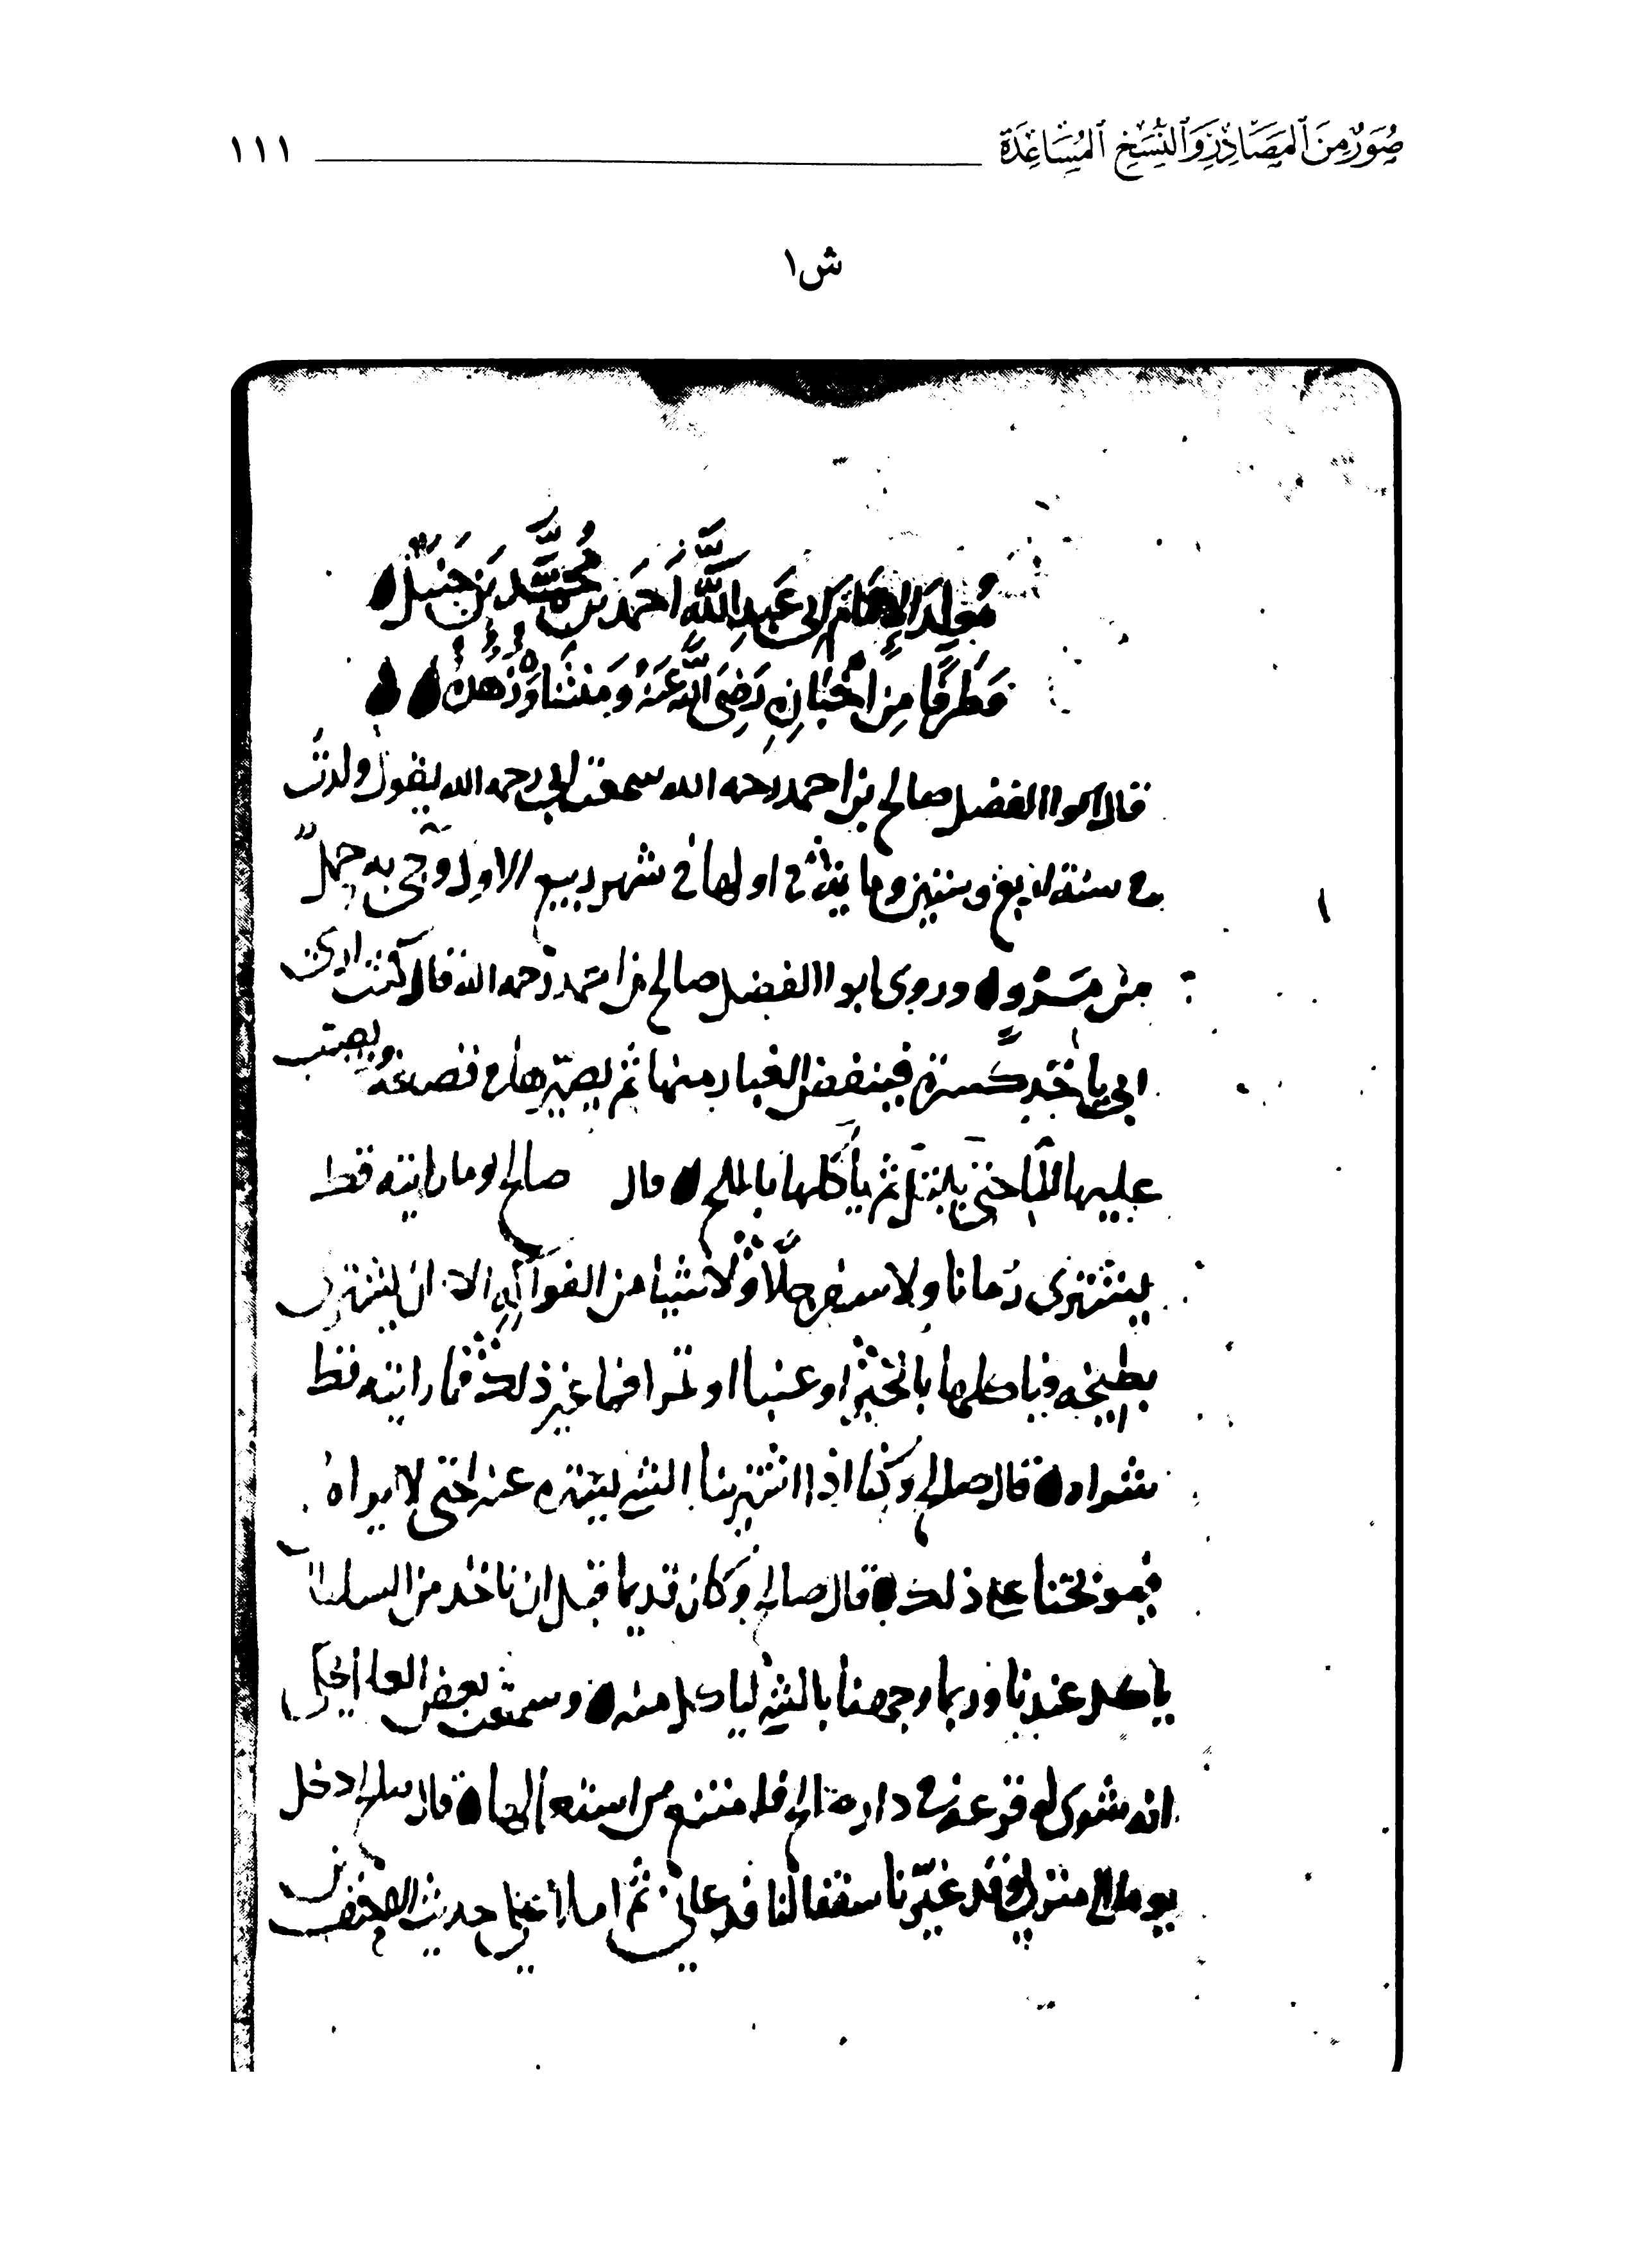 صُوَرٌ مِنَ ٱلمَصَادِرِ وَٱلنُّسَخِ ٱلمُسَاعِدَةِ
١١١
ش١
مَولِدُ الإِمَامِ أبي عَبدِ اللَّهِ أَحمَد بن مُحَمَّد بن حَنبَل
وَطَرفًا مِن أَخبَارِهِ رَضِيَ اللَّهُ عَنهُ وَمَنشَئَا وَزُهده
قال ابوا الفضل صالح بن احمد رحمه الله سمعت ابي رحمه الله يقول ولدتُ
في سنة اربع وستين ومايه في اولها في شهر ربيع الاول وجيَ به حملً
من مَرو وروى ابوا الفضل صالح بن احمد رحمه الله قال كنت ارى
ابي ياخذ كسرة فينفض الغبار منها ثم يصيّرها في قصعة ويصب
عليها الماَ حتى تبتل ثم ياكلها بالملح قال صالح وما رايته قط
يشترى رُمانا ولا سفرجلًا ولا شيا من الفواكه الا ان يشترى
بطيخه فياكلها بالخبز او عنبا او تمرا فاما غير ذلك فما رايته قط
شراه قال صالح وكنا اذا اشترينا الشي يستره عنه حتى لا يراه
فيوبخنا على ذلك قال صالح وكان قديما قبل ان ناخذ من السلطان
ياكل عندنا وربما وجهنا بالشي لياكل منه وسمعت بعض العلما يحكى
انه شوى له قرعة في دار صالح فامتنع من استعمالها قال صالح دخل
يوما الى منزلي وقد غيّرنا سقفا لنا فدعاني ثم املا علي حديث الاحنف بن